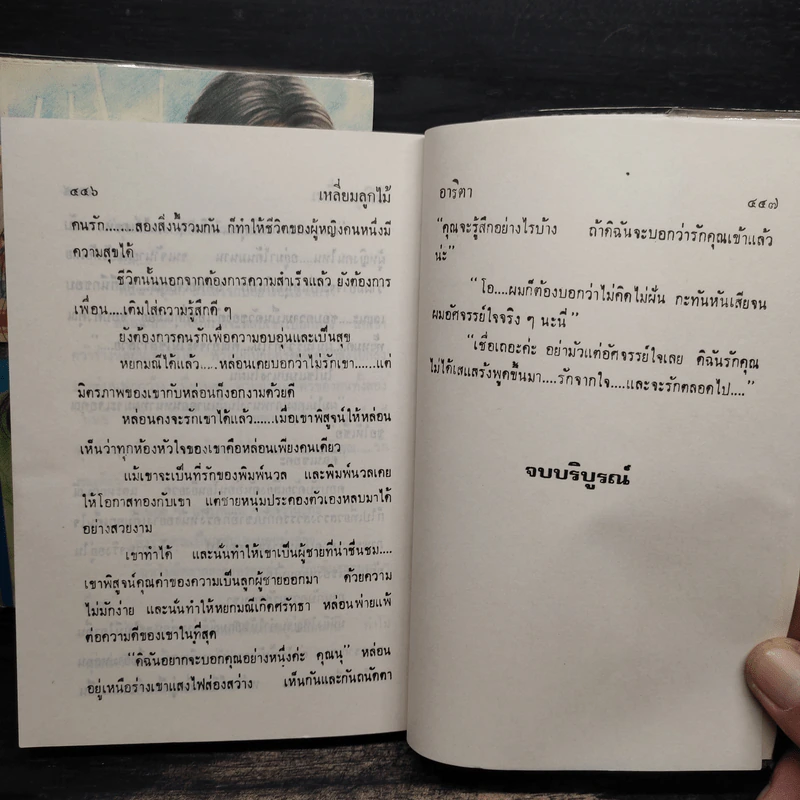 ๔๕๖ เหลี่ยมลูกไม้
คนรัก.......สองสิ่งนี้รวมกัน ก็ทำให้ชีวิตของผู้หญิงคนหนึ่งมี
ความสุขได้
ชีวิตนั้นนอกจากต้องการความสำเร็จแล้ว ยังต้องการ
เพื่อน....เติมใส่ความรู้สึกดี ๆ
ยังต้องการคนรักเพื่อความอบอุ่นและเป็นสุข
หยกมณีได้แล้ว.....หล่อนเคยบอกว่าไม่รักเขา......แต่
มิตรภาพของเขากับหล่อนก็งอกงามด้วยดี
หล่อนคงจะรักเขาได้แล้ว......เมื่อเขาพิสูจน์ให้หล่อน
เห็นว่าทุกห้องหัวใจของเขาคือหล่อนเพียงคนเดียว
แม้เขาจะเป็นที่รักของพิมพ์นวล และพิมพ์นวลเคย
ให้โอกาสทองกับเขา แต่ชายหนุ่มประคองตัวเองหลบมาได้
อย่างสวยงาม
เขาทำได้ และนั่นทำให้เขาเป็นผู้ชายที่น่าชื่นชม....
เขาพิสูจน์คุณค่าของความเป็นลูกผู้ชายออกมา ด้วยความ
ไม่มักง่าย และนั่นทำให้หยกมณีเกิดศรัทธา หล่อนพ่ายแพ้
ต่อความดีของเขาในที่สุด
“ดิฉันอยากจะบอกคุณอย่างหนึ่งค่ะ คุณนุ” หล่อน
อยู่เหนือร่างเขาแสงไฟส่องสว่าง เห็นกันและกันถนัดตา
อาริตา ๔๕๗
“คุณจะรู้สึกอย่างไรบ้าง ถ้าดิฉันจะบอกว่ารักคุณเข้าแล้ว
น่ะ”
“โอ....ผมก็ต้องบอกว่าไม่คิดไม่ฝัน กะทันหันเสียจน
ผมอัศจรรย์ใจจริง ๆ นะนี่”
“เชื่อเถอะค่ะ อย่ามัวแต่อัศจรรย์ใจเลย ดิฉันรักคุณ
ไม่ได้เสแสร้งพูดขึ้นมา....รักจากใจ....และจะรักตลอดไป....”
จบบริบูรณ์